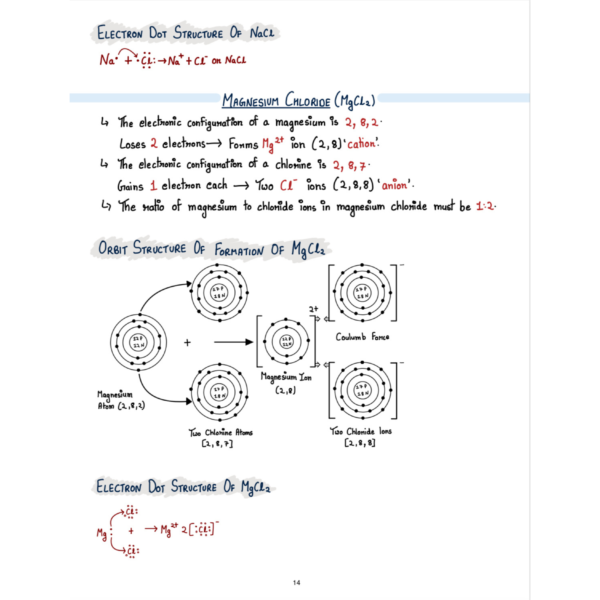 Electron Dot Structure Of NaCl
Na• + •Cl: → Na⁺ + Cl⁻ or NaCl
Magnesium Chloride (MgCl₂)
↳ The electronic configuration of a magnesium is 2, 8, 2.
Loses 2 electrons → Forms Mg²⁺ ion (2,8) 'cation'.
↳ The electronic configuration of a chlorine is 2, 8, 7.
Gains 1 electron each → Two Cl⁻ ions (2,8,8) 'anion'.
↳ The ratio of magnesium to chloride ions in magnesium chloride must be 1:2.
Orbit Structure Of Formation Of MgCl₂
+
2+
−
Coulumb Force
−
Magnesium Ion
(2,8)
Magnesium
Atom (2,8,2)
Two Chlorine Atoms
[2,8,7]
Two Chloride Ions
[2,8,8]
Electron Dot Structure Of MgCl₂
Cl:
Mg: + → Mg²⁺ 2[:Cl:]⁻
Cl:
14